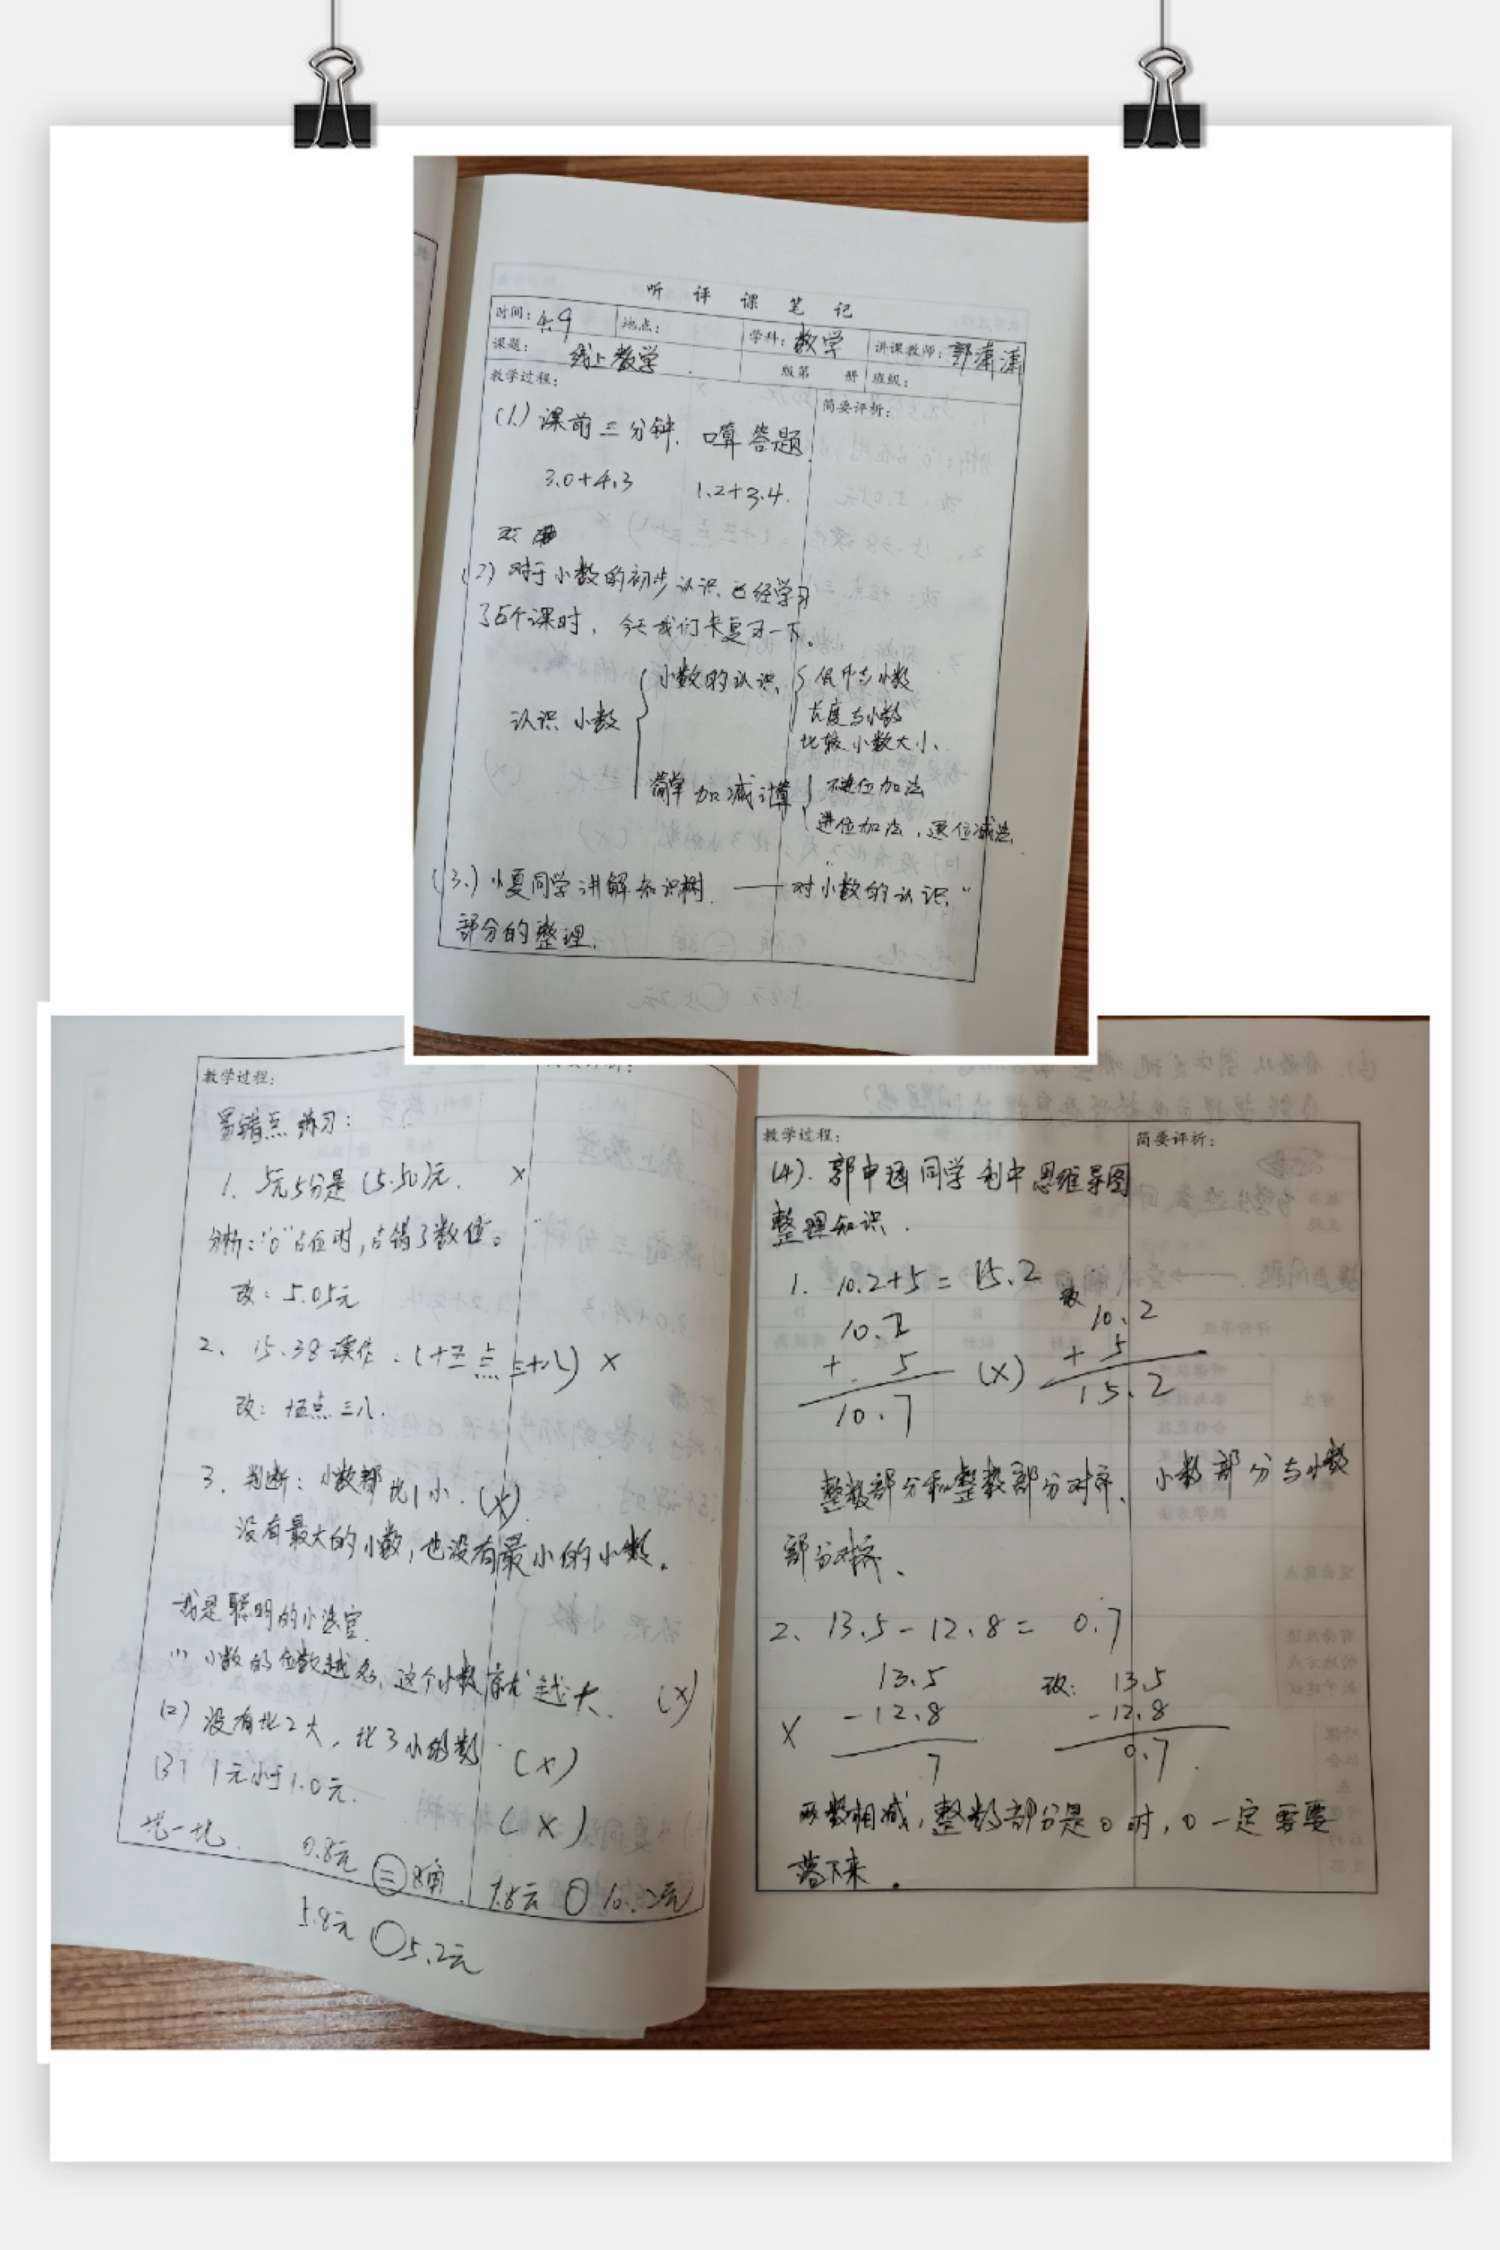 听 评 课 笔 记
时间：4.9 地点： 学科：数学 讲课教师：郭潇潇
课题：线上教学 版第 册 班级：
教学过程： 简要评析：
(1.) 课前三分钟. 口算答题
3.0+4.3 1.2+3.4.
(2) 对于小数的初步认识，已经学习
了5个课时，今天我们来复习一下。
小数的认识 人民币与小数
认识小数 长度与小数
比较小数大小、
简单加减计算 不进位加法
进位加法，退位减法
(3.) 小夏同学讲解知识树. ——对"小数的认识"
部分的整理.
教学过程：
易错点练习：
1. 5元5分是(5.50)元. ×
分析："0"占位时，占错了数位。
改：5.05元
2、15.38读作：(十五点三十八) ×
改：十五点三八.
3. 判断：小数都比1小. (×)
没有最大的小数，也没有最小的小数。
我是聪明的小法官.
(1) 小数的位数越多，这个小数就越大. (×)
(2) 没有比2大，比3小的数. (×)
(3) 1元小于1.0元. (×)
比一比. 0.8元 = 8角. 7.8元 ○ 10.2元
5.8元 ○ 5.2元
教学过程： 简要评析：
(4). 郭申通同学利用思维导图
整理知识.
1. 10.2+5=15.2
10.2 改 10.2
+ 5 (×) + 5
10.7 15.2
整数部分和整数部分对齐、小数部分与小数
部分对齐、
2、13.5-12.8= 0.7
13.5 改： 13.5
× -12.8 -12.8
7 0.7
两数相减，整数部分是0时，0一定要要
落下来。